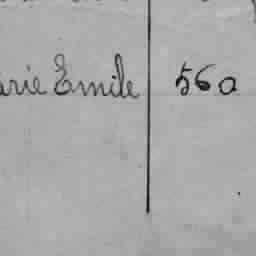 arie Emile 560